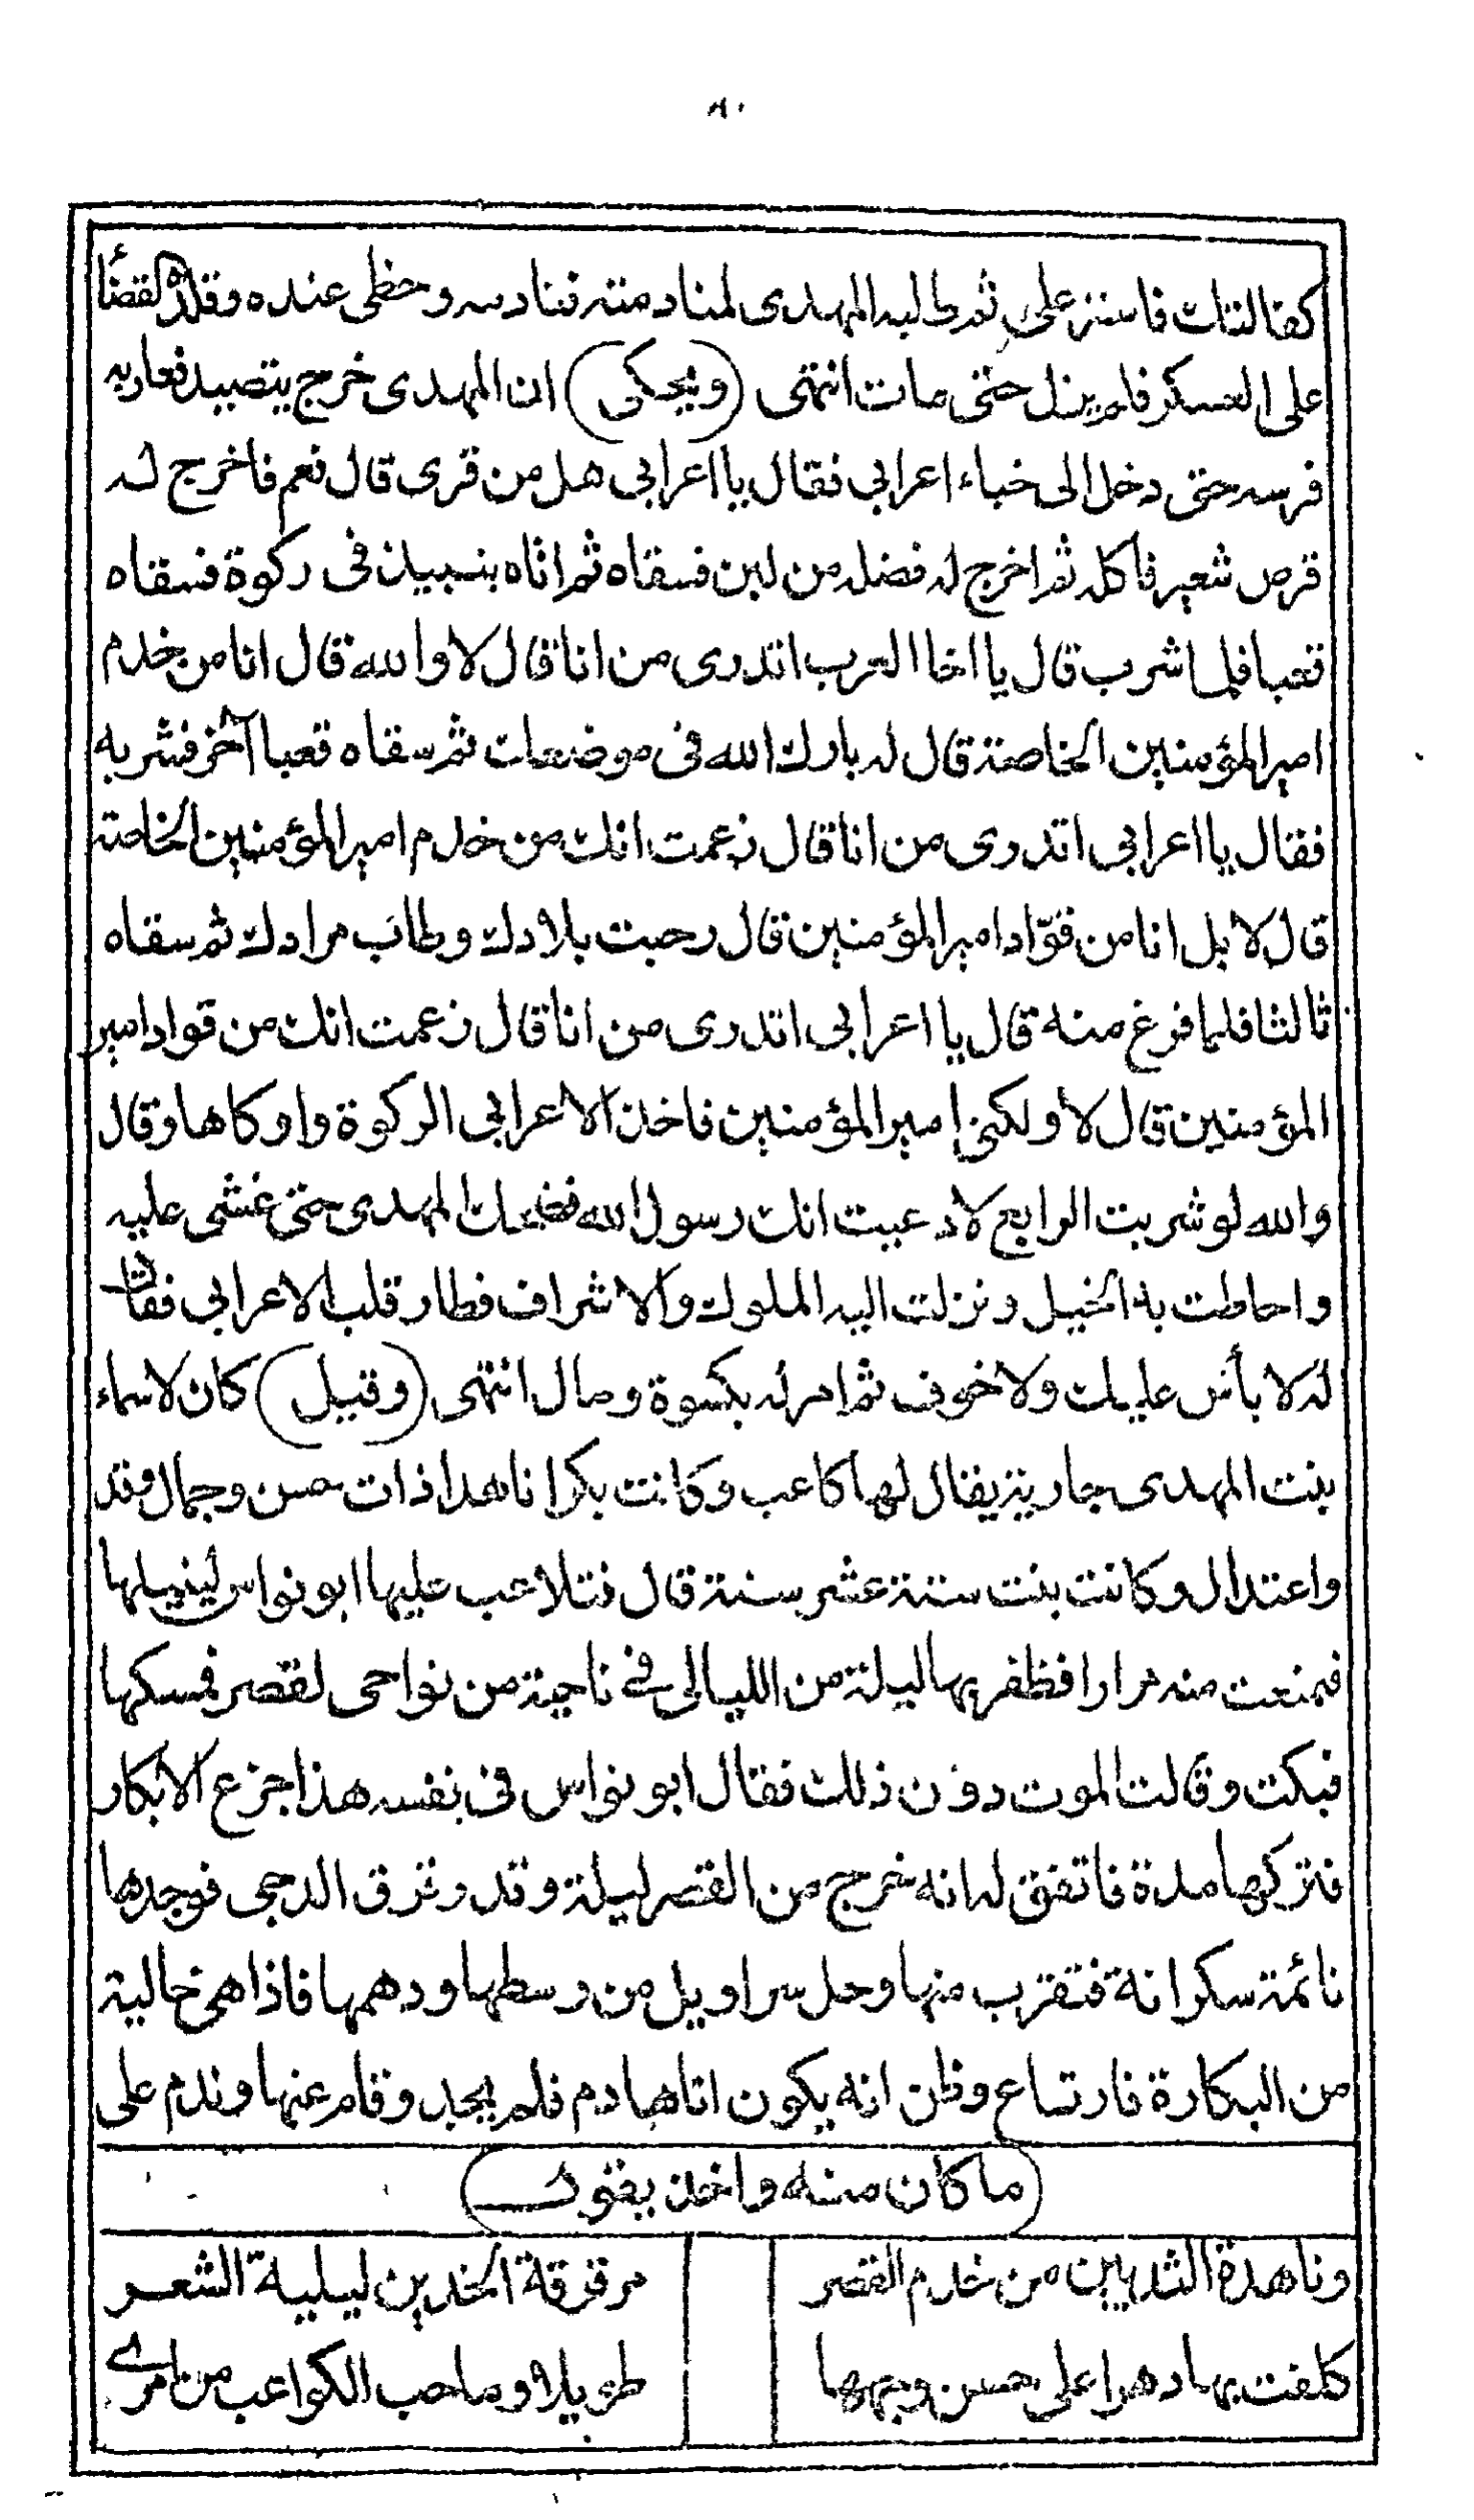 ٨٠
كفالتك فاستر على ثم طلبه المهدى لمنادمته فنادمه وحظى عنده وقلده القضأ
على العسكر فلم يزل حتى مات انتهى (ويحكى) ان المهدى خرج يتصيد فعار به
فرسه حتى دخل الى خباء اعرابي فقال يا اعرابي هل من قرى قال نعم فاخرج له
قرص شعير فاكله ثم اخرج له فضله من لبن فسقاه ثم اتاه بنبيذ فى ركوة فسقاه
قعبا فلما شرب قال يا اخا العرب اتدرى من انا قال لا والله قال انا من خدم
امير المؤمنين الخاصة قال له بارك الله فى موضعك ثم سقاه قعبا آخر فشربه
فقال يا اعرابي اتدرى من انا قال زعمت انك من خدم امير المؤمنين الخاصة
قال لا بل انا من قوّاد امير المؤمنين قال رحبت بلادك وطاب مرادك ثم سقاه
ثالثا فلما فرغ منه قال يا اعرابي اتدرى من انا قال زعمت انك من قواد امير
المؤمنين قال لا ولكنى امير المؤمنين فاخذ الاعرابي الركوة واوكاها وقال
والله لو شربت الرابع لادعيت انك رسول الله فضحك المهدى حتى غشى عليه
واحاطت به الخيل ونزلت اليه الملوك والاشراف فطار قلب الاعرابي فقال
له لا بأس عليك ولا خوف ثم امر له بكسوة ومال انتهى (وقيل) كان لاسماء
بنت المهدى جارية يقال لها كاعب وكانت بكرا ناهدا ذات حسن وجمال وقد
واعتدال وكانت بنت ستة عشر سنة قال فتلاعب عليها ابو نواس لينيلها
فمنعت منه مرارا فظفر بها ليلة من الليالى فى ناحية من نواحى لقصر فمسكها
فبكت وقالت الموت دون ذلك فقال ابو نواس فى نفسه هذا جزع الابكار
فتركها مدة فاتفق له انه خرج من القصر ليلة وقد رزق الدجى فوجدها
نائمة سكرانة فتقرب منها وحل سراويل من وسطها ودهمها فاذا هى خالية
من البكارة فارتاع وظن انه يكون اتاها دم فلم يجد وقام عنها وندم على
(ما كان منه واخذ يقول)
وناهدة الثديين من خدم القصر مرقرقة الخدين ليلية الشعر
كلفت بها دهرا على حسن وجهها طويلا وما حب الكواعب من امرى